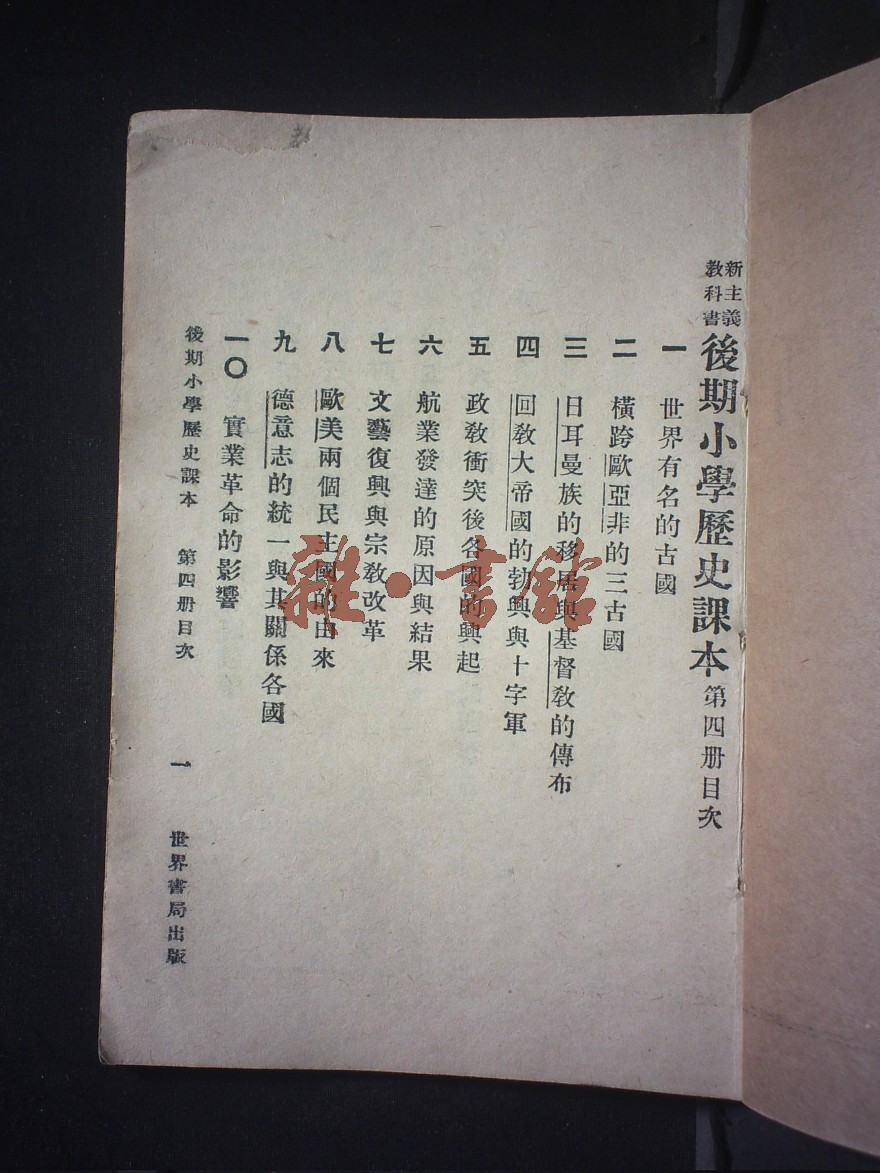 新主義
教科書
後期小學歷史課本 第四册目次
一 世界有名的古國
二 橫跨歐亞非的三古國
三 日耳曼族的移居與基督敎的傳布
四 回敎大帝國的勃興與十字軍
五 政敎衝突後各國的興起
六 航業發達的原因與結果
七 文藝復興與宗敎改革
八 歐美兩個民主國的由來
九 德意志的統一與其關係各國
一〇 實業革命的影響
後期小學歷史課本 第四册目次 一 世界書局出版
雜·書館